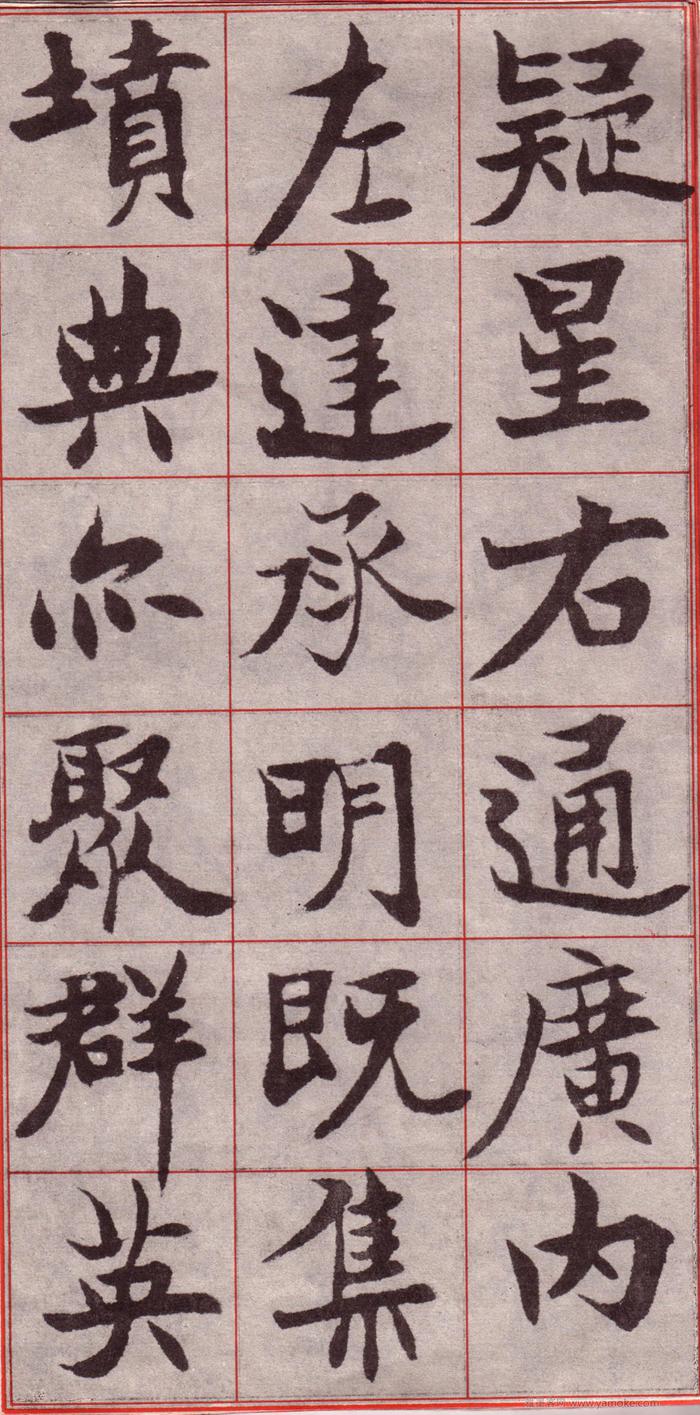 疑星右通廣内
左達承明既集
墳典亦聚群英
www.yamoke.com